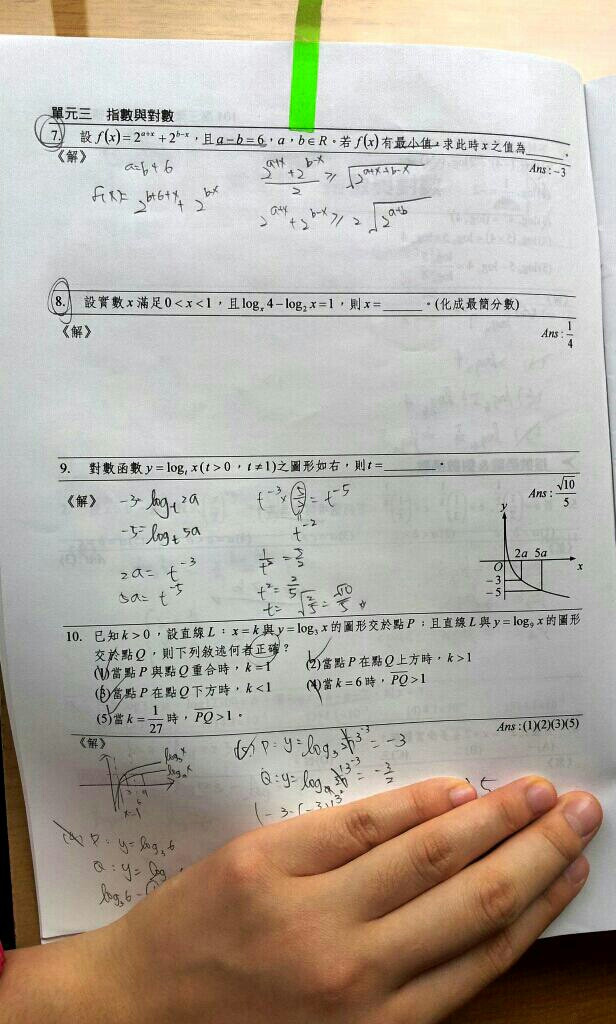 單元三 指數與對數
7. 設 f(x)=2^{a+x}+2^{b-x}，且 a-b=6，a，b∈R。若 f(x) 有最小值，求此時 x 之值為______。
《解》 Ans：-3
a=b+6
f(x)= 2^{b+6+x}+2^{b-x}
(2^{a+x}+2^{b-x})/2 ≥ √(2^{a+x+b-x})
2^{a+x}+2^{b-x} ≥ 2√(2^{a+b})
8. 設實數 x 滿足 0<x<1，且 log_x 4-log_2 x=1，則 x=______。(化成最簡分數)
《解》 Ans：1/4
9. 對數函數 y=log_t x (t>0，t≠1)之圖形如右，則 t=______。
《解》 Ans：√10/5
-3=log_t 2a
-5=log_t 5a
2a= t^{-3}
5a= t^{-5}
t^{-3}×5/2=t^{-5}
t^{-2}
t^2=2/5
t=√(2/5)=√10/5
y
2a 5a
O x
-3
-5
10. 已知 k>0，設直線 L：x=k 與 y=log_3 x 的圖形交於點 P；且直線 L 與 y=log_9 x 的圖形
交於點 Q，則下列敘述何者正確？
(1)當點 P 與點 Q 重合時，k=1 (2)當點 P 在點 Q 上方時，k>1
(3)當點 P 在點 Q 下方時，k<1 (4)當 k=6 時，PQ>1
(5)當 k=1/27 時，PQ>1。
《解》 Ans：(1)(2)(3)(5)
log_3 x
log_9 x
x=1
(5) P：y=log_3 3^{-3}=-3
Q：y=log_9 3^{-3}=-3/2
(4) P：y=log_3 6
Q：y=log
log_3 6-